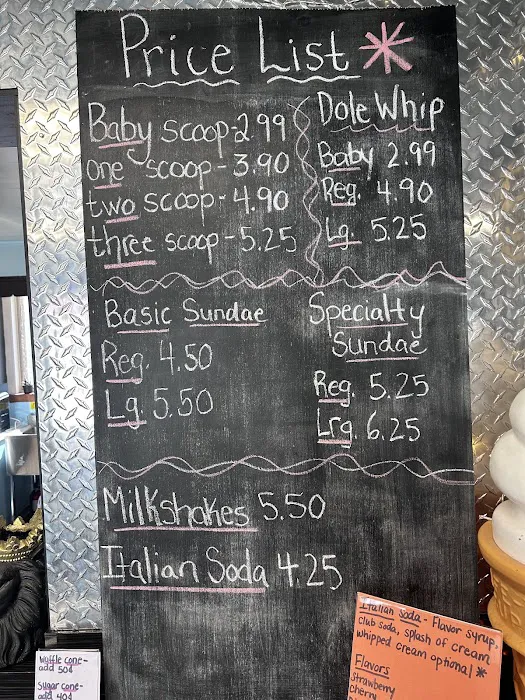 Price List *
Baby scoop-2.99
one scoop-3.90
two scoop-4.90
three scoop-5.25
Dole Whip
Baby 2.99
Reg. 4.90
Lg. 5.25
Basic Sundae
Reg. 4.50
Lg. 5.50
Specialty
Sundae
Reg. 5.25
Lrg. 6.25
Milkshakes 5.50
Italian Soda 4.25
Waffle cone-
add 50¢
Sugar cone-
add 40¢
Italian Soda - Flavor syrup,
club soda, splash of cream
whipped cream optional *
Flavors
Strawberry
Cherry